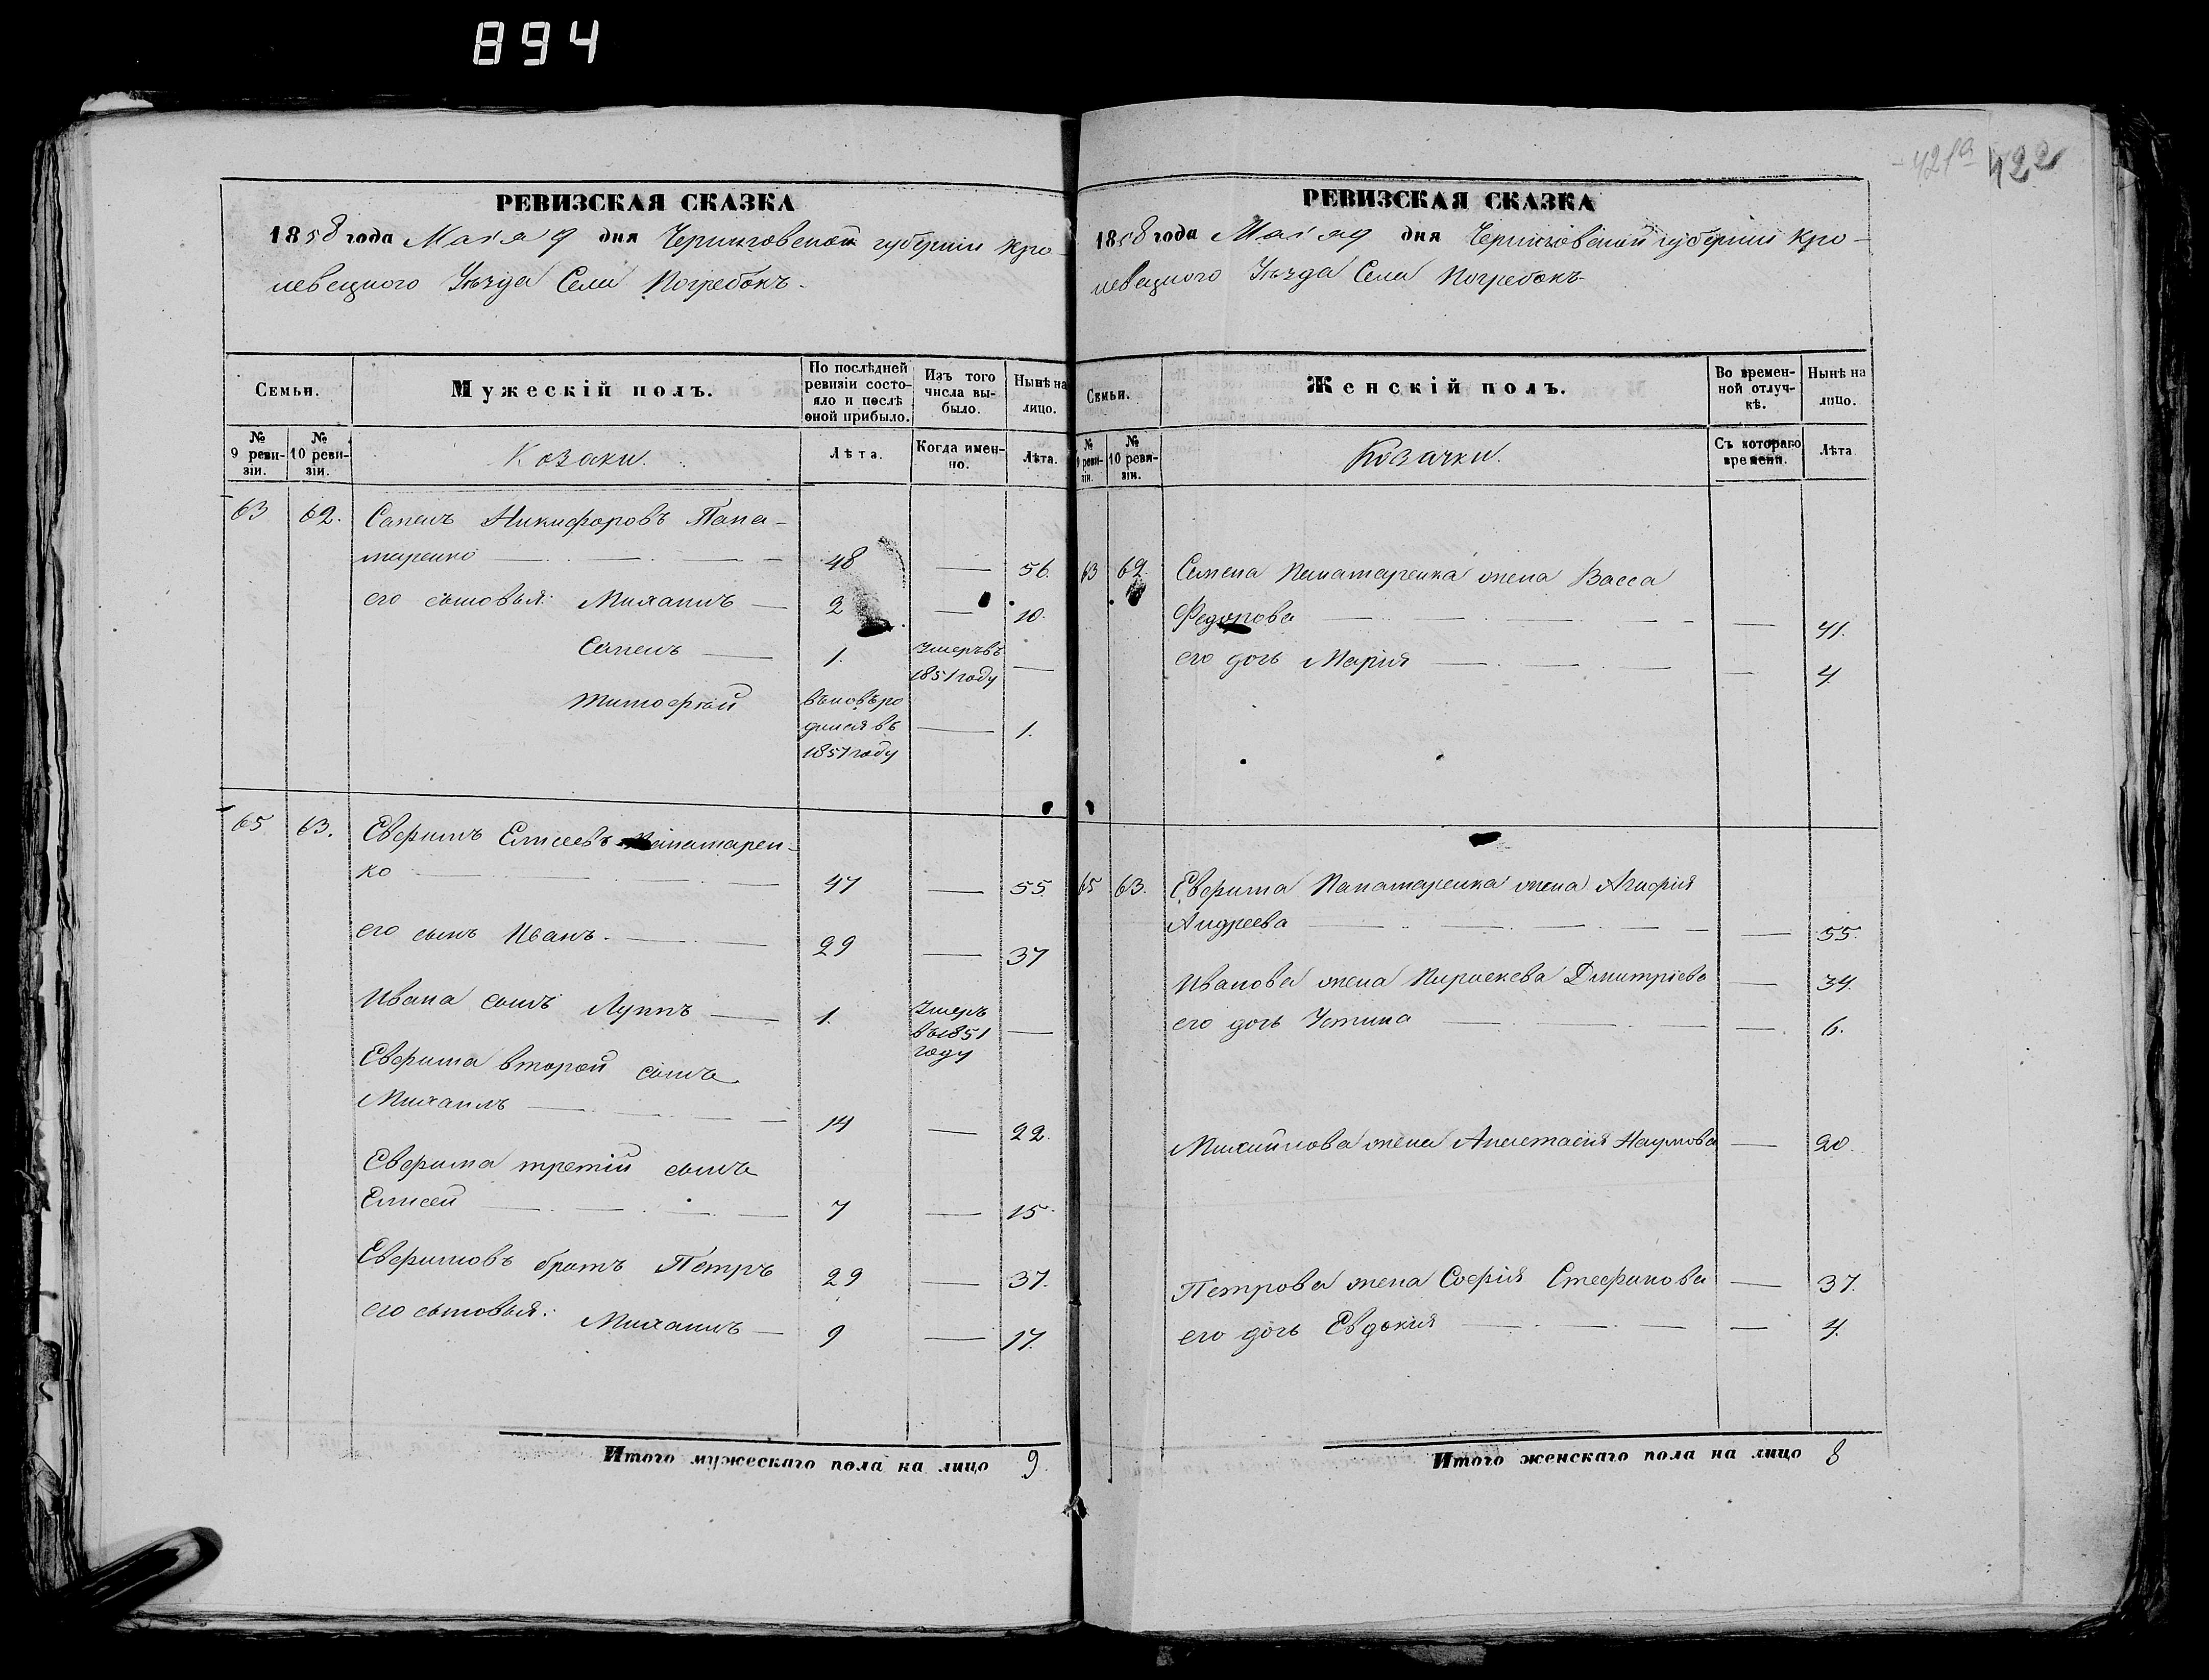 894
421а 422
РЕВИЗСКАЯ СКАЗКА
1858 года Маія 9 дня Черниговской губерніи Кро-
левецкого Уѣзда Села Погребокъ.
Семьи.
Мужескій полъ.
По послѣдней ревизіи состояло и послѣ оной прибыло.
Изъ того числа выбыло.
Нынѣ на лицо.
№ 9 ревизіи.
№ 10 ревизіи.
Козаки.
Лѣта.
Когда именно.
Лѣта.
63 62. Семенъ Никифоровъ Пана-
маренко 48 — 56.
его сыновья: Михаилъ — 2 — 10.
Семенъ — 1. Умеръ въ
1851 году —
Тимофей вновь ро
дился въ — 1.
1857 году
65 63. Евфимъ Елисеевъ Панамарен-
ко 47 — 55.
его сынъ Иванъ. 29 — 37
Ивана сынъ Луппъ — 1. Умеръ
въ 1851 —
году
Евфима второй сынъ
Михаилъ 14 — 22.
Евфима третій сынъ
Елисей 7 — 15.
Евфимовъ братъ Петръ 29 — 37.
его сыновья: Михаилъ — 9 — 17.
Итого мужескаго пола на лицо 9.
РЕВИЗСКАЯ СКАЗКА
1858 года Маія 9 дня Черниговской губерніи Кро-
левецкого Уѣзда Села Погребокъ
Семьи.
Женскій полъ.
Во временной отлучкѣ.
Нынѣ на лицо.
№ 9 ревизіи.
№ 10 ревизіи.
Козачки.
Съ котораго времени.
Лѣта
63 62. Семена Панамаренка жена Васса
Федорова — 41.
его дочь Марія — 4.
65 63. Евфима Панамаренка жена Агафія
Андреева — 55.
Иванова жена Параскева Дмитріева — 34.
его дочь Устина — 6.
Михайлова жена Анастасія Наумова — 20.
Петрова жена Софія Стефанова — 37.
его дочь Евдокія — 4.
Итого женскаго пола на лицо 8